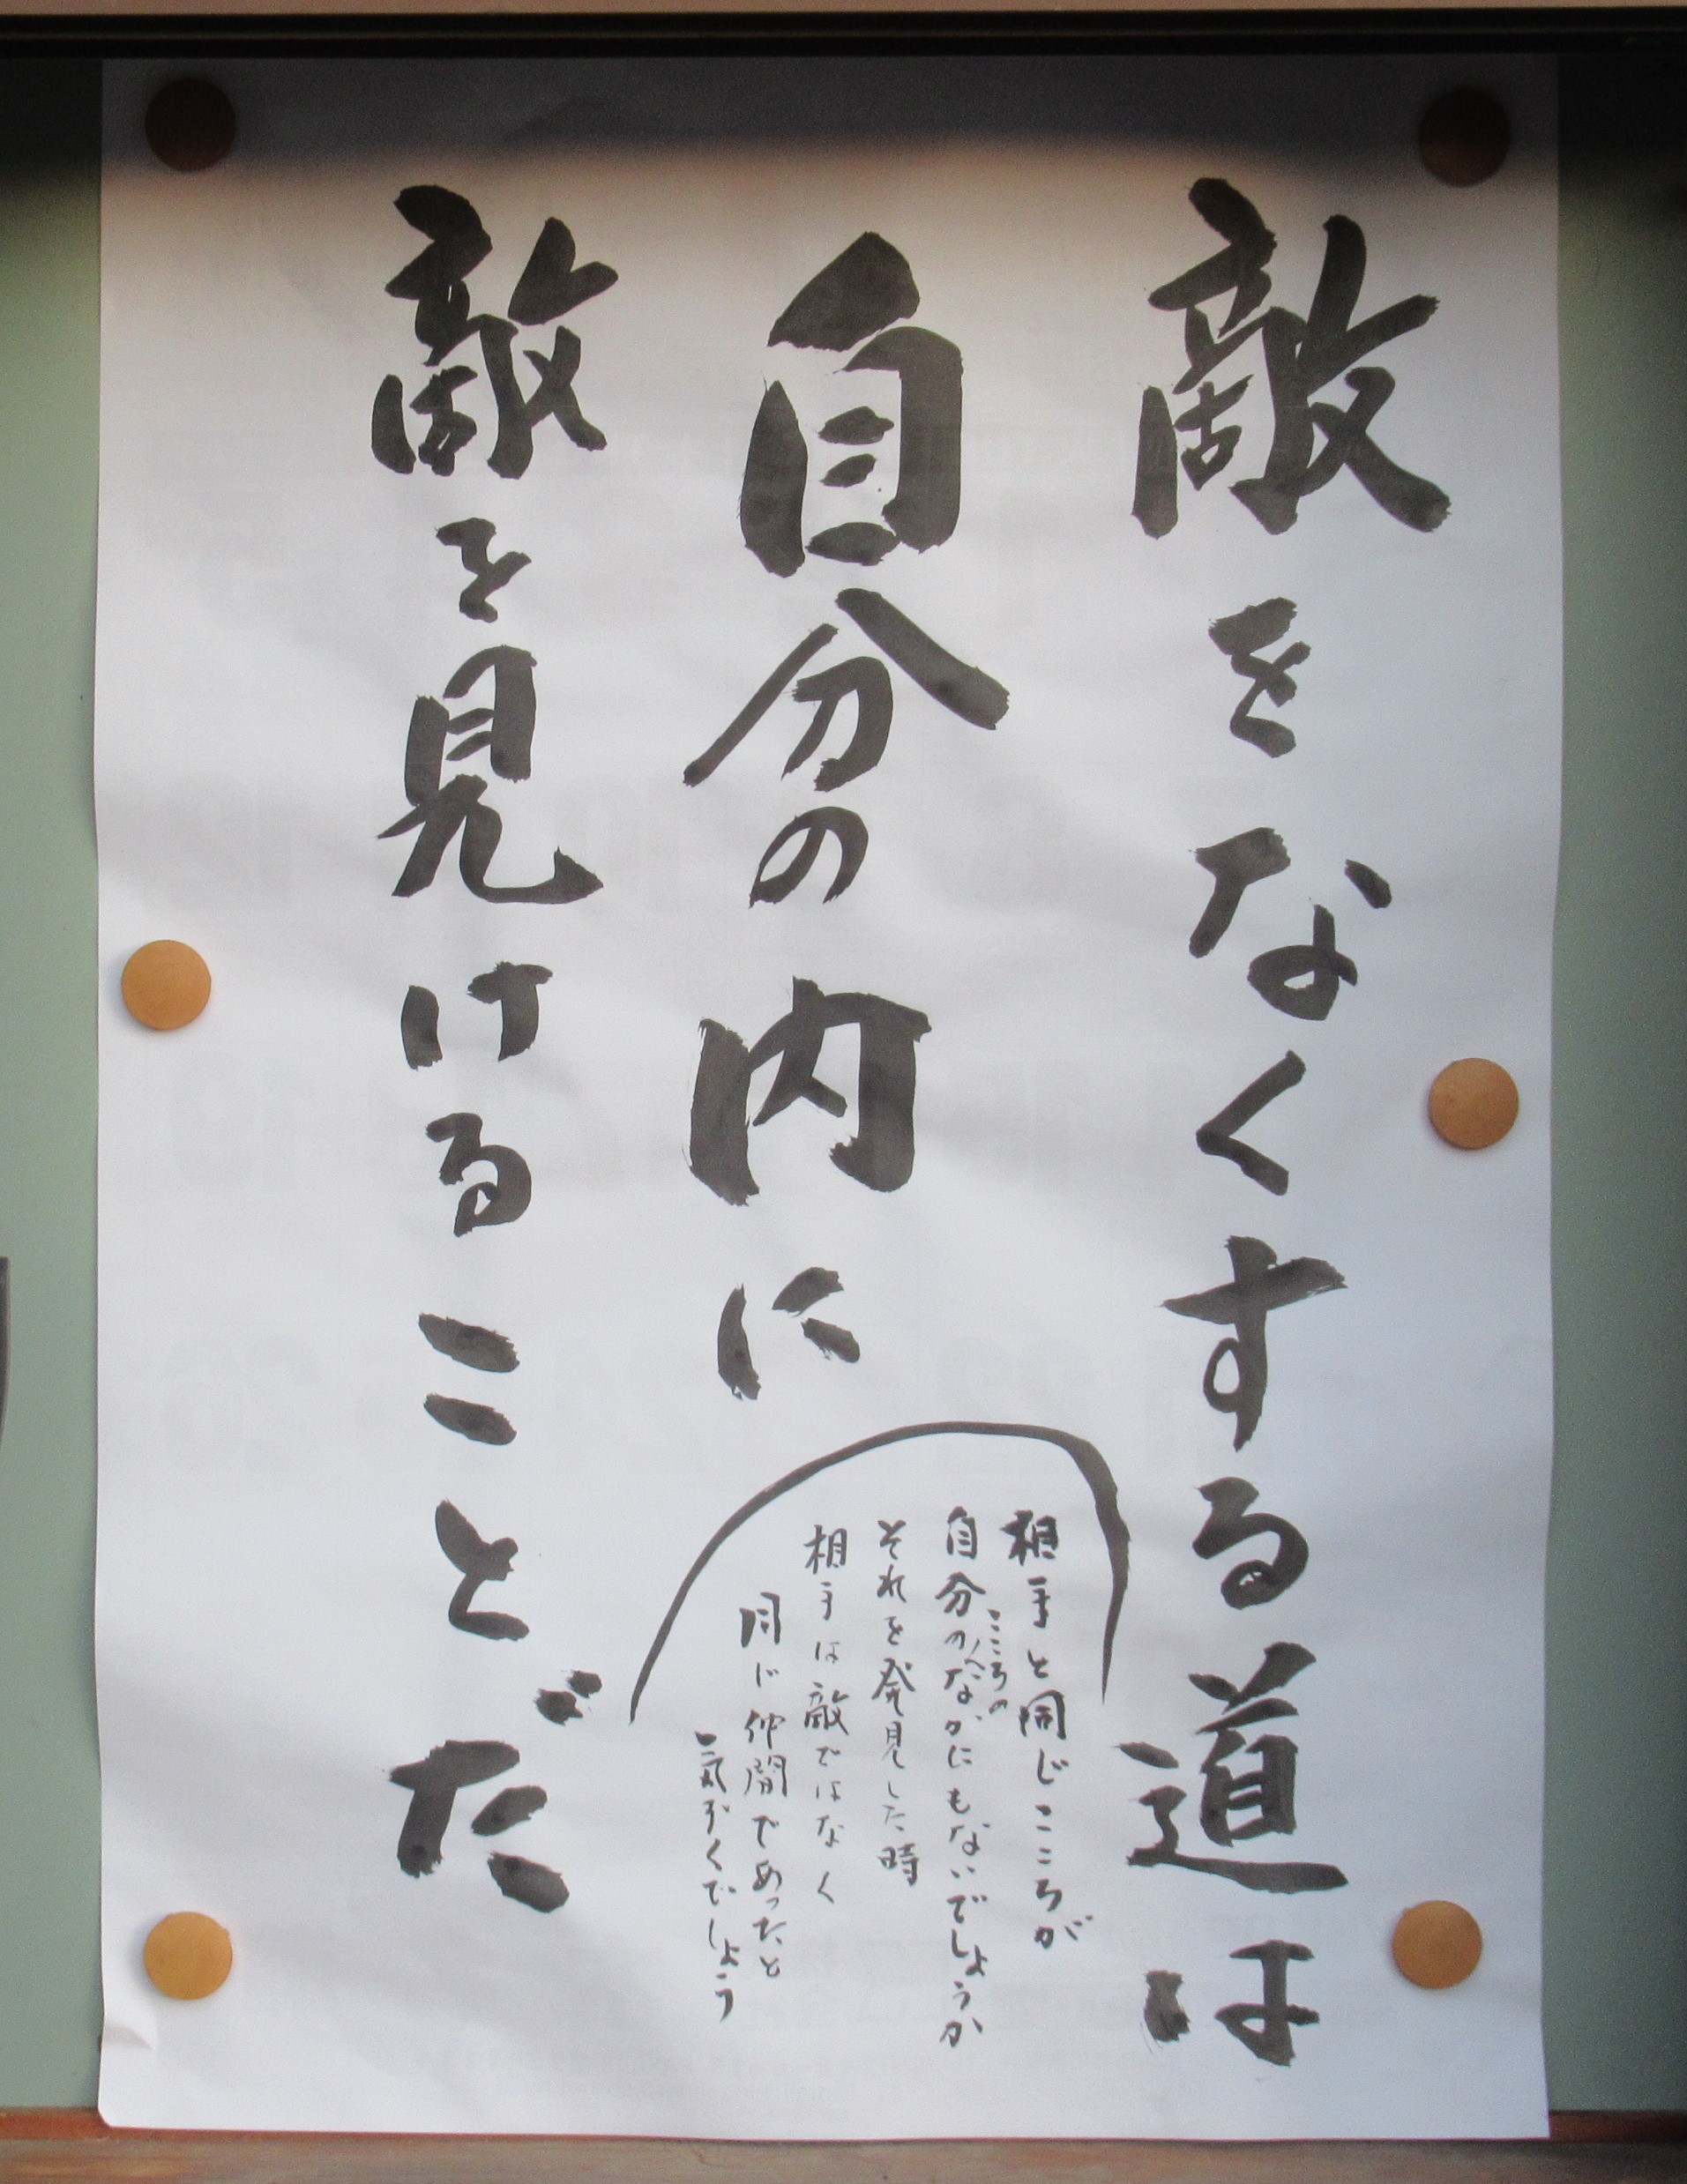 敵をなくする道は
自分の内に
敵を見けることだ
相手と同じこころが
自分のこころのなかにもないでしょうか
それを発見した時
相手は敵ではなく
同じ仲間であったと
気づくでしょう